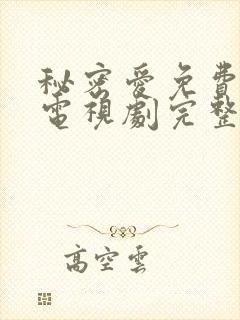 秘密愛免費
電視劇完整
高空雲